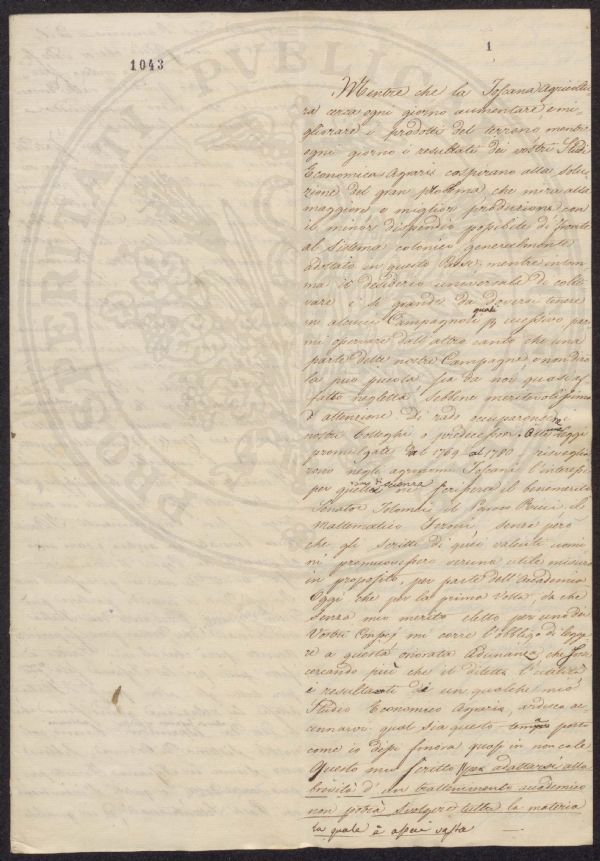 1043
1
Mentre che la Toscana Agricoltu
ra cerca ogni giorno aumentare e mi-
gliorare i prodotti del terreno mentre
ogni giorno i resultati dei vostri Studi
Economico Agrari cospirano alla solu
zione del gran problema, che mira alla
maggiore e miglior produzione con
il minor dispendio possibile di fronte
al Sistema colonico generalmente
adottato in questo Paese, mentre in som
ma il desiderio universale di colti-
vare è sì grande da doversi tenere
in alcuni Campagnoli quasi per eccessivo, par
mi osservare dall'altro canto che una
parte delle nostre Campagne e non dirò
la più piccola sia da noi quasi af
fatto negletta. Sebbene meritevolissima
d'attenzione di rado occuparonsene
i nostri Colleghi o predecessori. Leggi
promulgate dal 1769 al 1780 risveglia
rono negli agronomi Toscani l'interesse
per quella e ne scrissero il benemerito
Senator Tolomei il Ricci il
Mattematico senza però
che gli scritti di quei valenti uomi
ni promuovessero veruna utile misura
in proposito, per parte dell'Accademia
Oggi che per la prima volta da che
senza mio merito eletto per uno dei
Vostri mi corre l'obbligo di legge
re a questa onorata Adunanza, che
cercando più che il diletto l'utilità
i resultati di un qualche mio
Studio Economico Agrario, ardisco ac
cennarvi qual sia questa parte
come io dissi finora quasi in non cale
Questo mio scritto adattarsi alla
brevità d'un trattenimento accademico
non potrà svolgere tutta la materia
la quale è assai vasta
PUBLICA